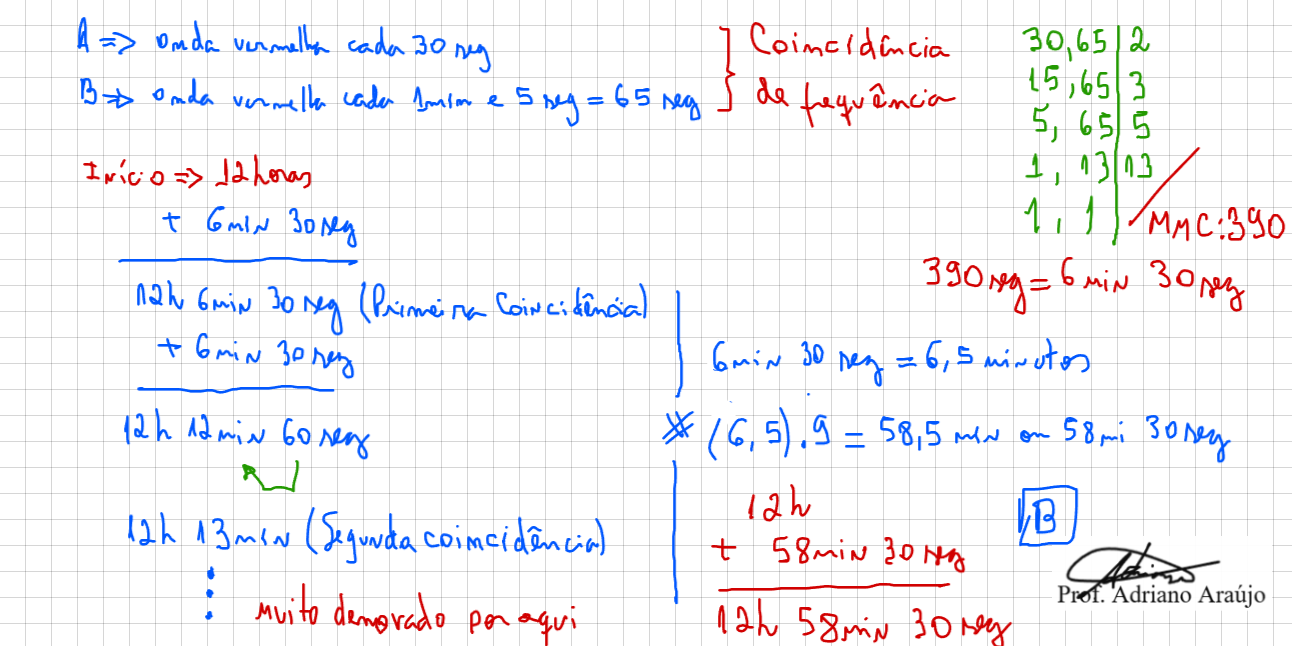 A => onda vermelha cada 30 seg
B => onda vermelha cada 1min e 5 seg = 65 seg
Coincidência
de frequência
30,65 | 2
15,65 | 3
5, 65 | 5
1, 13 | 13
1, 1 | MMC:390
390 seg = 6 min 30 seg
Início => 12 horas
+ 6 min 30 seg
12h 6min 30 seg (Primeira Coincidência)
+ 6 min 30 seg
12h 12min 60 seg
12h 13min (Segunda coincidência)
muito demorado por aqui
6 min 30 seg = 6,5 minutos
(6,5).9 = 58,5 min ou 58 mi 30 seg
12h
+ 58 min 30 seg
12h 58min 30 seg
B
Prof. Adriano Araújo